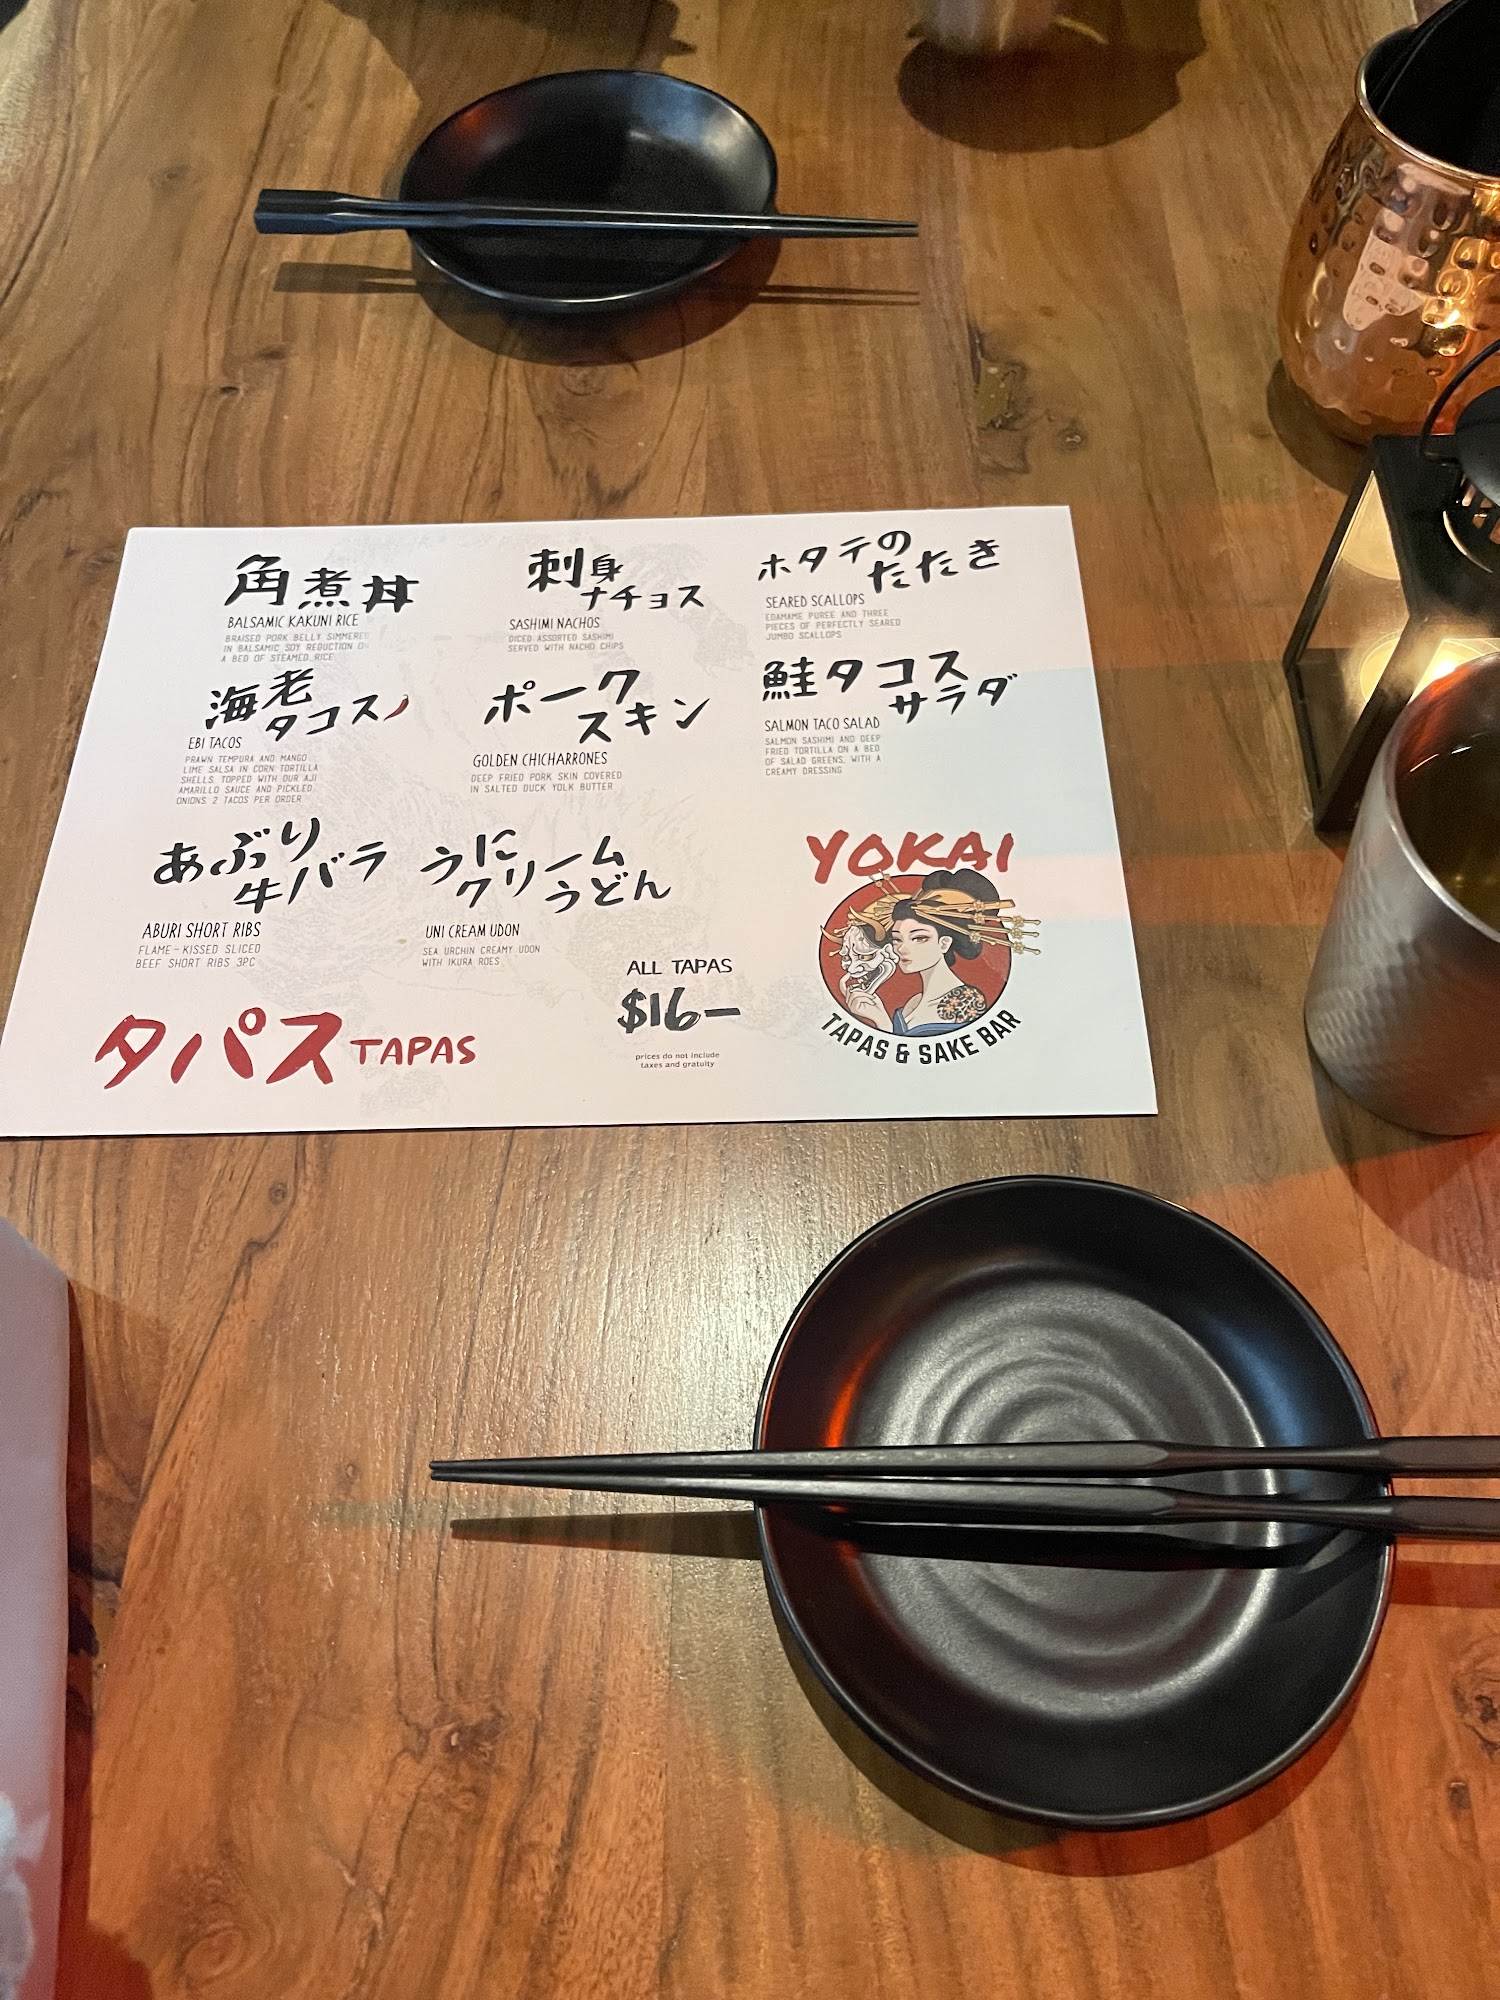 角煮丼
BALSAMIC KAKUNI RICE
BRAISED PORK BELLY SIMMERED
IN BALSAMIC SOY REDUCTION ON
A BED OF STEAMED RICE
刺身
ナチョス
SASHIMI NACHOS
DICED ASSORTED SASHIMI
SERVED WITH NACHO CHIPS
ホタテの
たたき
SEARED SCALLOPS
EDAMAME PUREE AND THREE
PIECES OF PERFECTLY SEARED
JUMBO SCALLOPS
海老
タコス
EBI TACOS
PRAWN TEMPURA AND MANGO
LIME SALSA IN CORN TORTILLA
SHELLS, TOPPED WITH OUR AJI
AMARILLO SAUCE AND PICKLED
ONIONS. 2 TACOS PER ORDER
ポーク
スキン
GOLDEN CHICHARRONES
DEEP FRIED PORK SKIN COVERED
IN SALTED DUCK YOLK BUTTER
鮭タコス
サラダ
SALMON TACO SALAD
SALMON SASHIMI AND DEEP
FRIED TORTILLA ON A BED
OF SALAD GREENS, WITH A
CREAMY DRESSING
あぶり
牛バラ
ABURI SHORT RIBS
FLAME-KISSED SLICED
BEEF SHORT RIBS 3PC
うに
クリーム
うどん
UNI CREAM UDON
SEA URCHIN CREAMY UDON
WITH IKURA ROES
ALL TAPAS
$16—
prices do not include
taxes and gratuity
タパス TAPAS
YOKAI
TAPAS & SAKE BAR